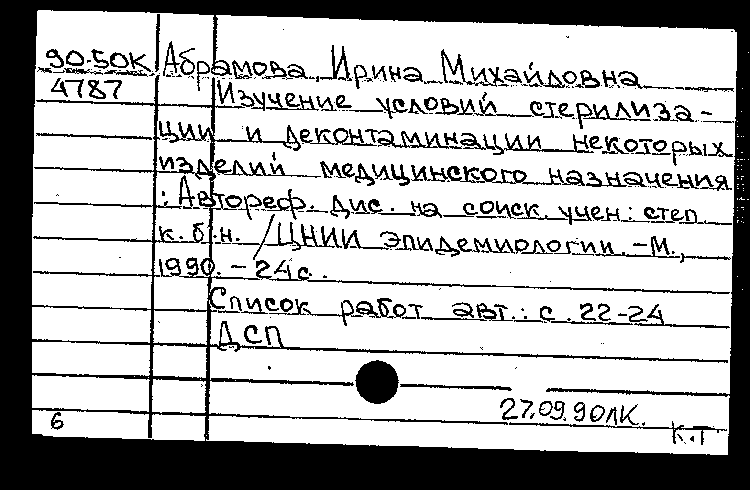 90-50К Абрамова, Ирина Михайловна
4787 Изучение условий стерилиза-
ции и деконтаминации некоторых
изделий медицинского назначения
: Автореф. дис. на соиск. учен. степ.
к.б.н. / ЦНИИ эпидемиологии. -М.,
1990. - 24 с.
Список работ авт.: с. 22-24
ДСП
27.09.90ЛК.
6 К.Т